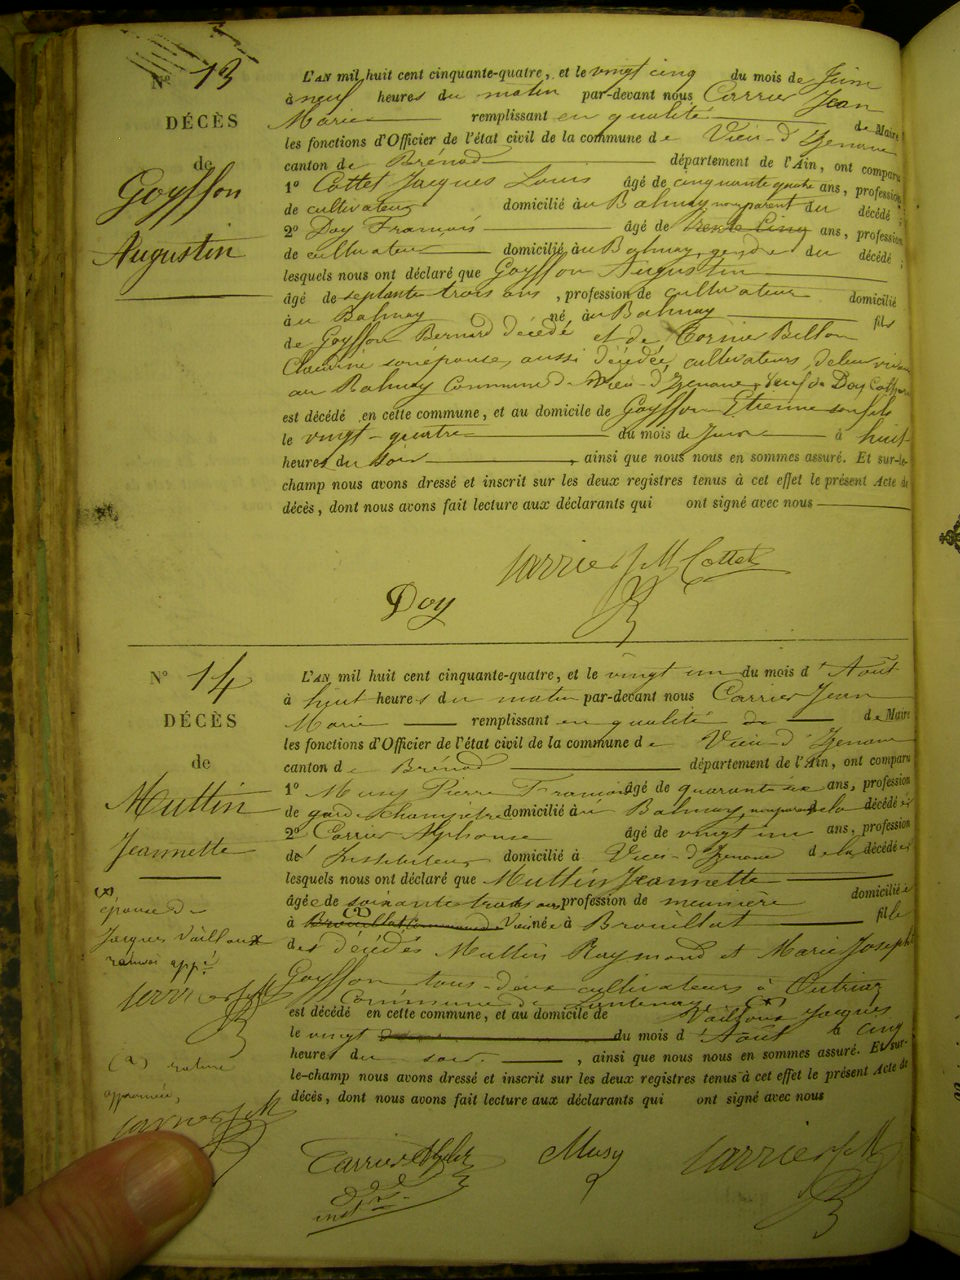 N° 13
DÉCÈS
de
Goyffon
Augustin
L'AN mil huit cent cinquante-quatre, et le vingt cinq du mois de Juin
à neuf heures du matin par-devant nous Carrier Jean
Marie remplissant en qualité de Maire
les fonctions d'Officier de l'état civil de la commune de Vieu-d'Izenave
canton de Brénod département de l'Ain, ont comparu
1° Cottet Jacques Louis âgé de cinquante quatre ans, profession
de cultivateur domicilié au Balmay non parent du décédé ;
2° Doy François âgé de trente cinq ans, profession
de cultivateur domicilié au Balmay, gendre du décédé ;
lesquels nous ont déclaré que Goyffon Augustin
âgé de septante trois ans, profession de cultivateur domicilié
au Balmay né au Balmay fils
de Goyffon Bernard décédé et de Billon
Claudine son épouse, aussi décédée, cultivateurs de leur vivant
au Balmay Commune de Vieu-d'Izenave, veuf de Doy
est décédé en cette commune, et au domicile de Goyffon Etienne son fils
le vingt-quatre du mois de Juin à huit
heures du soir, ainsi que nous nous en sommes assuré. Et sur-le-
champ nous avons dressé et inscrit sur les deux registres tenus à cet effet le présent Acte de
décès, dont nous avons fait lecture aux déclarants qui ont signé avec nous
Carrier J M Cottet
Doy
N° 14
DÉCÈS
de
Muttin
Jeannette
L'AN mil huit cent cinquante-quatre, et le vingt un du mois d'Août
à huit heures du matin par-devant nous Carrier Jean
Marie remplissant en qualité de de Maire
les fonctions d'Officier de l'état civil de la commune de Vieu-d'Izenave
canton de Brénod département de l'Ain, ont comparu
1° Musy Pierre François âgé de quarante six ans, profession
de garde champêtre domicilié au Balmay, non parent de la décédée
2° Carrier Alphonse âgé de vingt un ans, profession
de Instituteur domicilié à Vieu-d'Izenave de la décédée
lesquels nous ont déclaré que Muttin Jeannette
âgée de soixante trois ans, profession de meunière domiciliée
à Brouillat Commune de Vieu née à Brouillat fille
des décédés Muttin Raymond et Marie Josephte
Goyffon tous-deux cultivateurs à Outriaz
Commune de Lantenay
est décédé en cette commune, et au domicile de Vailloux Jacques
le vingt du mois d'Août à cinq
heures du soir, ainsi que nous nous en sommes assuré. Et sur-
le-champ nous avons dressé et inscrit sur les deux registres tenus à cet effet le présent Acte de
décès, dont nous avons fait lecture aux déclarants qui ont signé avec nous
(x)
épouse de
Jacques Vailloux
renvoi app.é
Carrier J M
rature
approuvée,
Carrier J M
Carrier Alph
inst
Musy
Carrier J M